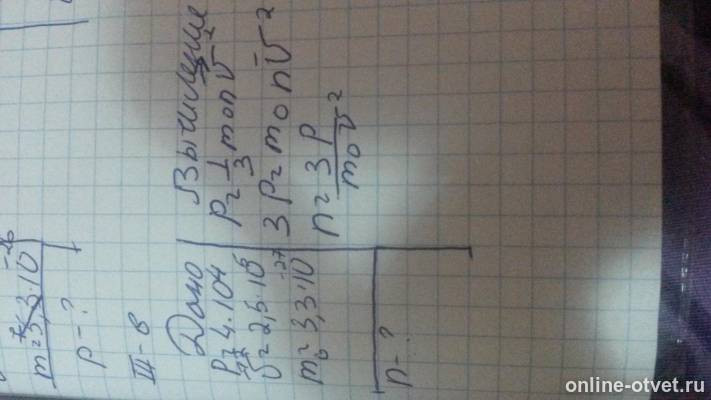 m = 3,3·10⁻²⁶
p - ?
III - в
Дано
p = 4·10⁴
v̄² = 2,5·10⁶
m₀ = 3,3·10⁻²⁷
n - ?
Вычисление
p = 1/3 m₀nv̄²
3p = m₀nv̄²
n = 3p/m₀v̄²
online-otvet.ru